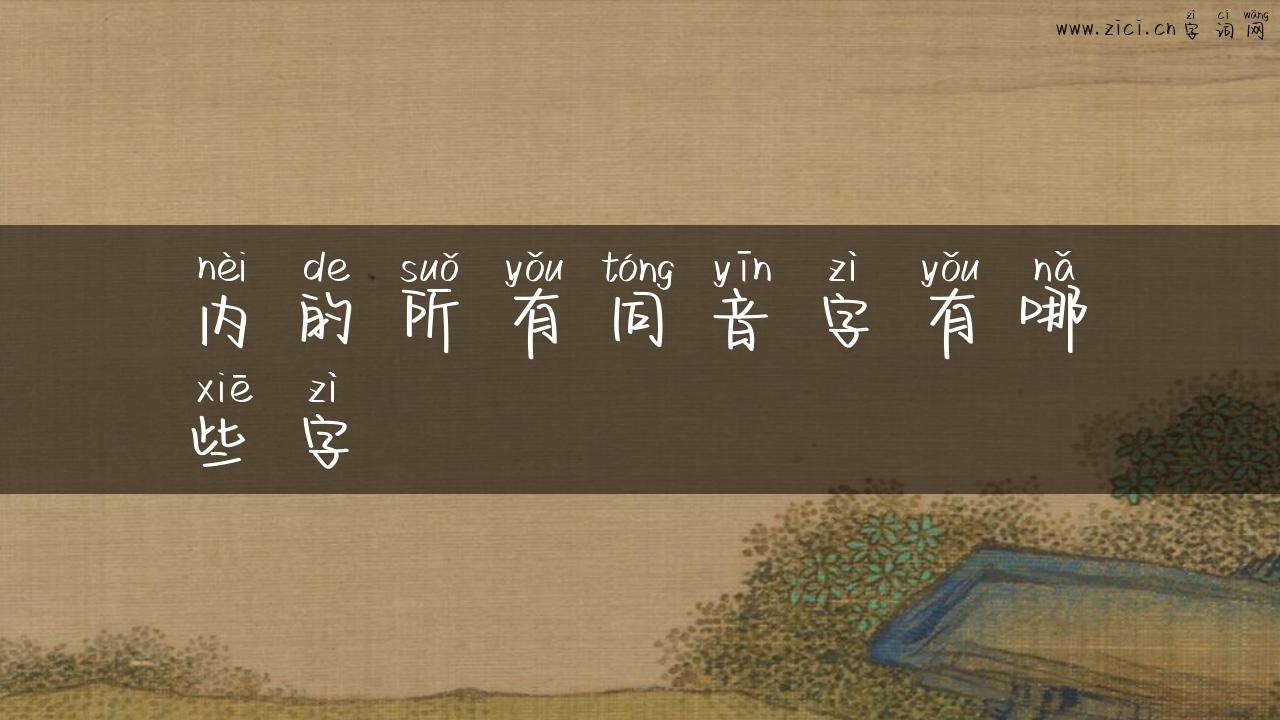 zì cí wǎng
www.zici.cn 字词网
nèi de suǒ yǒu tóng yīn zì yǒu nǎ
内的所有同音字有哪
xiē zì
些字